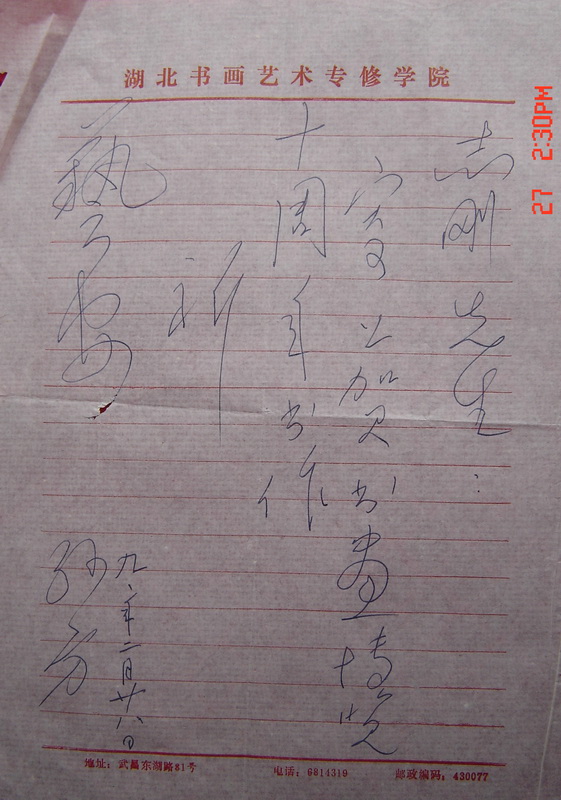 湖北书画艺术专修学院
志刚先生:
寄上贺书画博览
十周年书作
祈
九年二月廿八日
孙
地址: 武昌东湖路81号 电话: 6814319 邮政编码: 430077
27 2:30PM